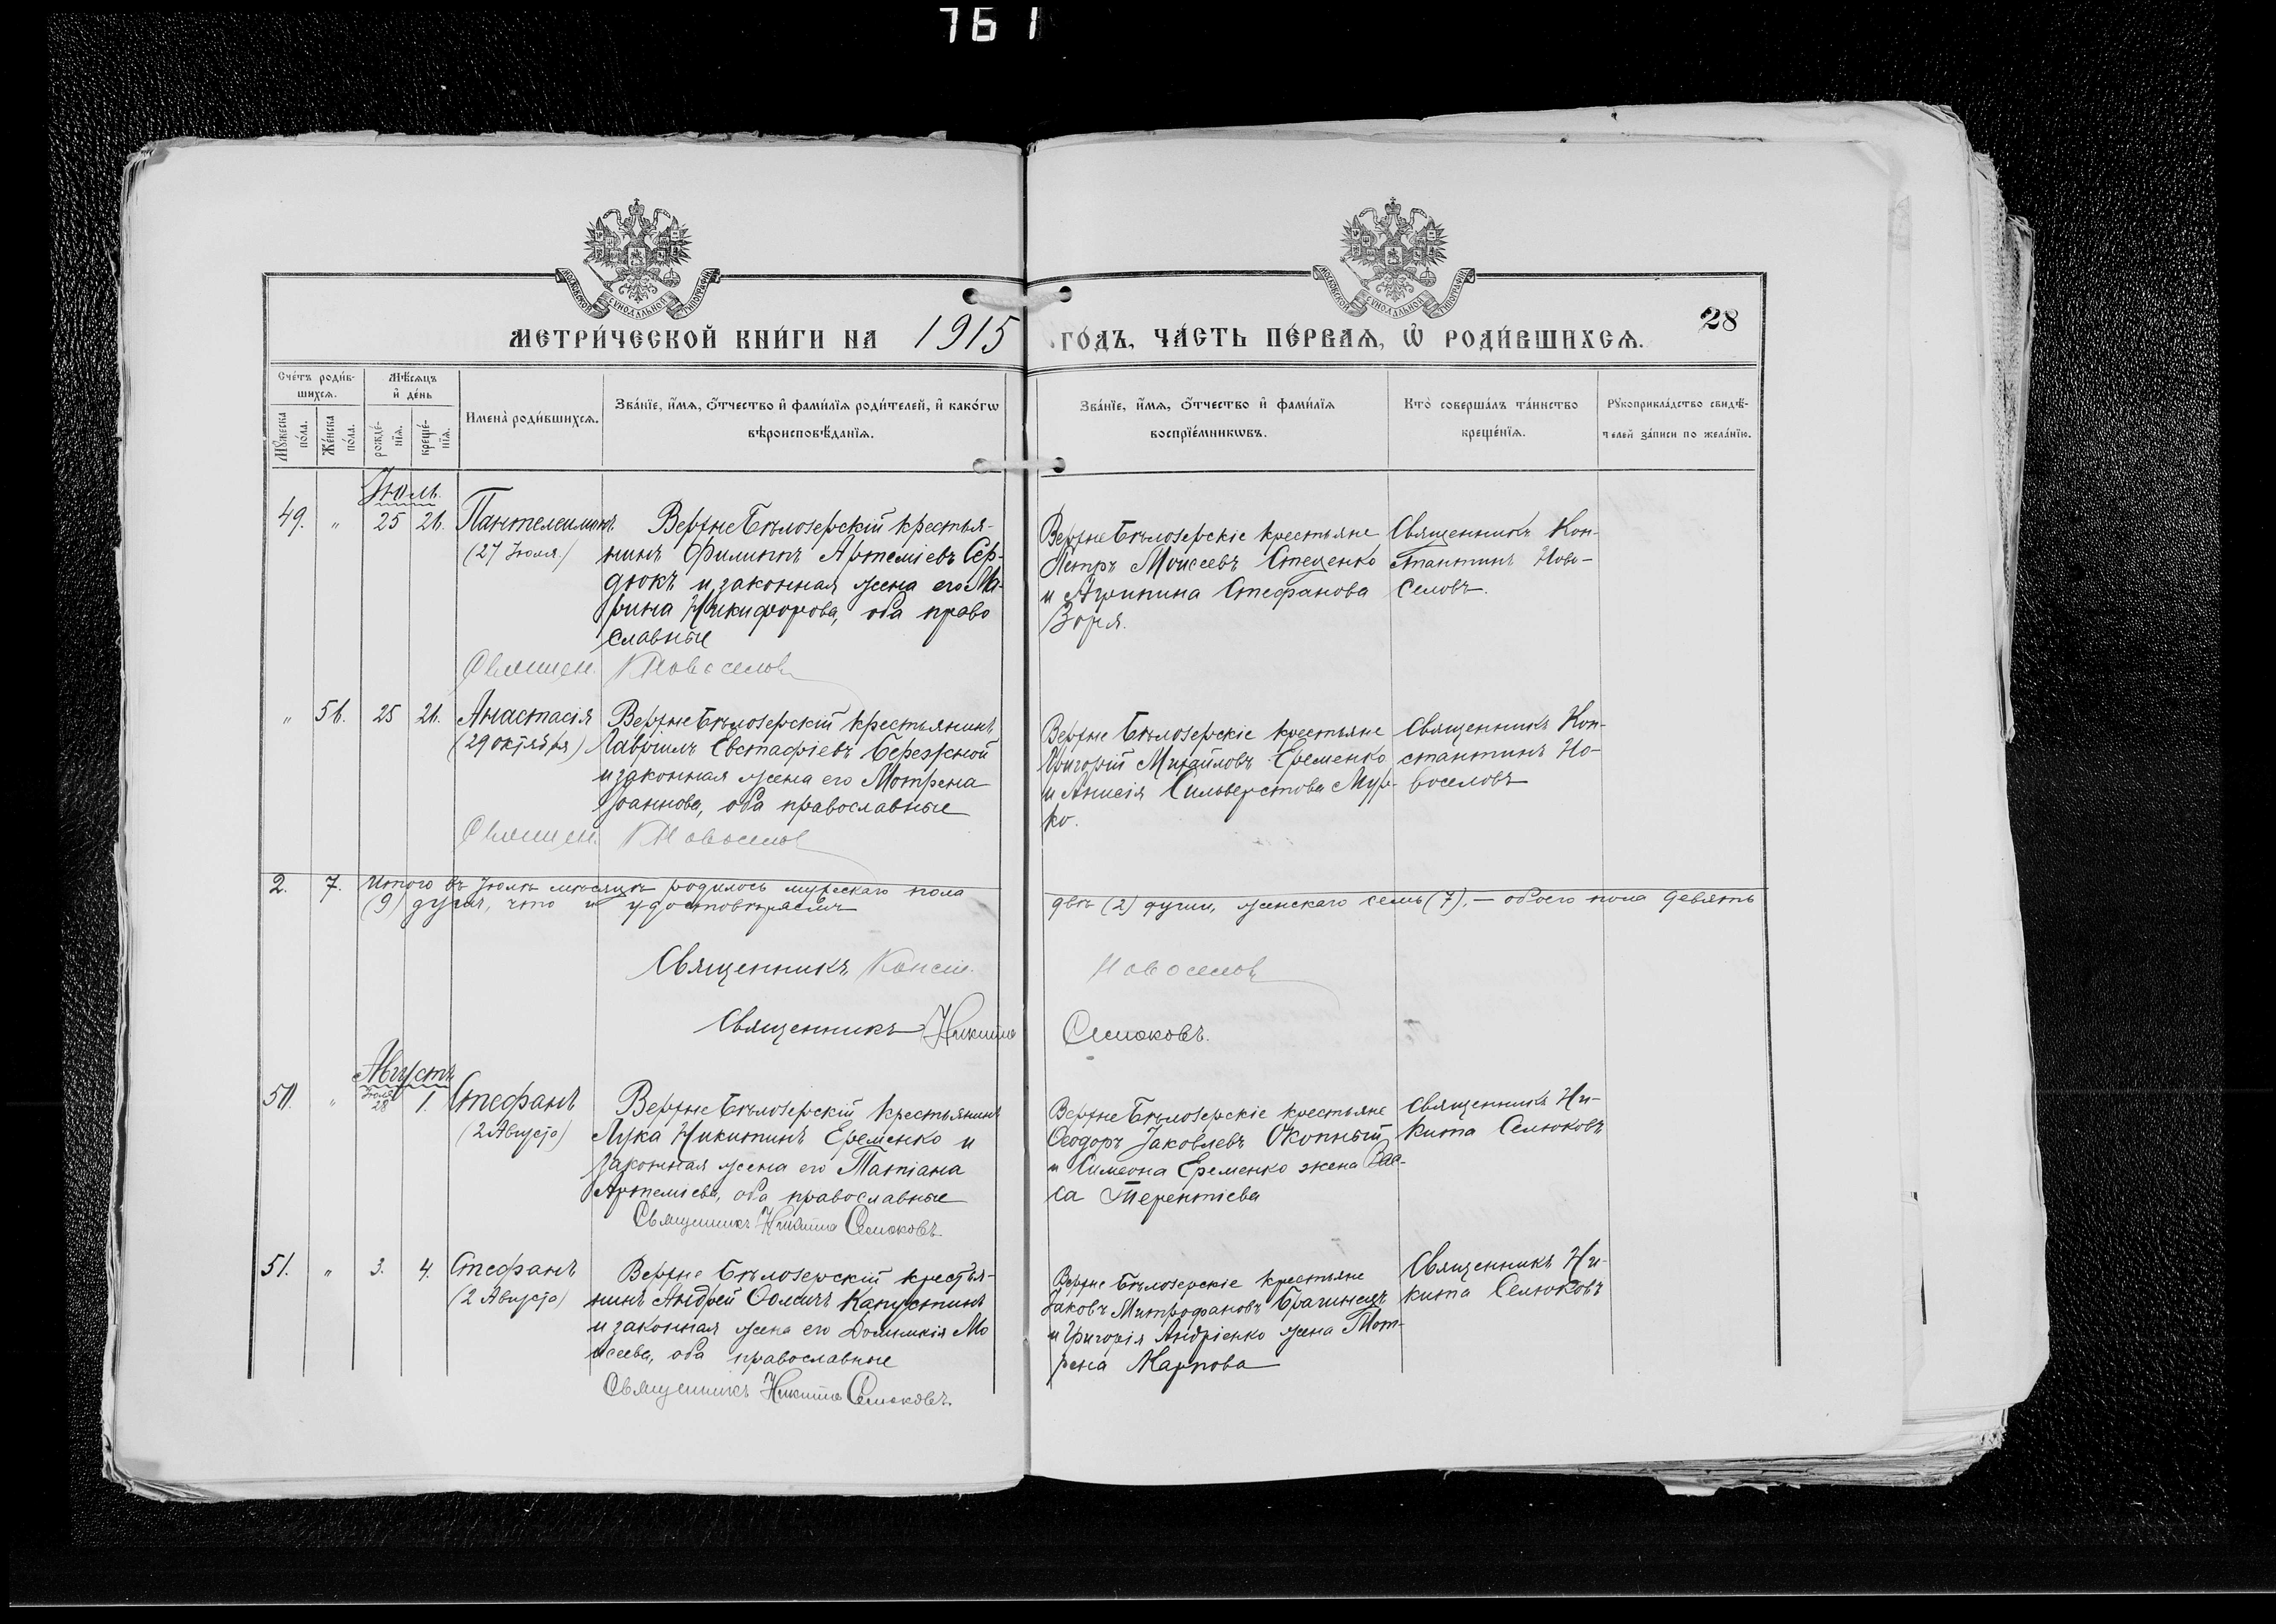 761
МОСКОВСКОЙ СѴНОДАЛЬНОЙ ТИПОГРАФІИ
МОСКОВСКОЙ СѴНОДАЛЬНОЙ ТИПОГРАФІИ
МЕТРИ́ЧЕСКОЙ КНИ́ГИ НА 1915 ГО́ДЪ, ЧА́СТЬ ПЕ́РВАЯ, Ѡ҆ РОДИ́ВШИХСѦ.
28
Сче́тъ роди́в-
шихсѧ.
Мѣ́сѧцъ
и҆ де́нь
Мꙋ́жеска
по́ла.
Же́нска
по́ла.
рожде́-
нїѧ.
креще́-
нїѧ.
Имена̀ роди́вшихсѧ.
Зва́нїе, и҆́мѧ, ѻ҆́тчество и҆ фами́лїѧ роди́телей, и҆ како́гѡ
вѣроисповѣ́данїѧ.
Зва́нїе, и҆́мѧ, ѻ҆́тчество и҆ фами́лїѧ
воспрїе́мникѡвъ.
Кто̀ соверша́лъ та́инство
креще́нїѧ.
Рꙋкоприкла́дство свидѣ́-
телей за́писи по жела́нїю.
Іюль.
49. " 25 26. Пантелеимонъ.
(27 Іюля)
Верхне Бѣлозерскій крестья-
нинъ Филиппъ Артеміевъ Сер-
дюкъ и законная жена его Ма-
рина Никифорова, оба право
славные
Священ. К Новоселов
Верхне Бѣлозерскіе крестьяне
Петръ Моисеевъ Стеценко
и Агрипина Стефанова
Зоря.
Священникъ Кон-
стантинъ Ново-
селовъ.
" 56. 25 26. Анастасія
(29 октября)
Верхне Бѣлозерскій крестьянинъ
Гавріилъ Евстафіевъ Бережной
и законная жена его Мотрена
Іоаннова, оба православные
Священ. К Новоселов
Верхне Бѣлозерскіе крестьяне
Григорій Михайловъ Еременко
и Анисія Сильверстова Мур-
ко.
Священникъ Кон-
стантинъ Но-
воселовъ
2. 7. Итого въ Іюлѣ мѣсяцѣ родилось мужескаго пола двѣ (2) души, женскаго семь (7), — обоего пола девять
(9) душъ, что и удостовѣряемъ
Священникъ Конст. Новоселов
Священникъ Никита Селюковъ.
Августъ
50. " Іюля 28 1. Стефанъ
(2 Августа)
Верхне Бѣлозерскій крестьянинъ
Лука Никитинъ Еременко и
законная жена его Татіана
Артеміева, оба православные
Священникъ Никита Селюковъ.
Верхне Бѣлозерскіе крестьяне
Ѳеодоръ Іаковлевъ Окопный
и Симеона Еременко жена Вас-
са Терентіева
Священникъ Ни-
кита Селюковъ
51. " 3. 4. Стефанъ
(2 Августа)
Верхне Бѣлозерскій крестья-
нинъ Андрей Ѳомичъ Капустинъ
и законная жена его Домникія Мо
исеева, оба православные
Священникъ Никита Селюковъ.
Верхне Бѣлозерскіе крестьяне
Іаковъ Митрофановъ Брагинецъ
и Григорія Андріенко жена Мот-
рена Карпова
Священникъ Ни-
кита Селюковъ